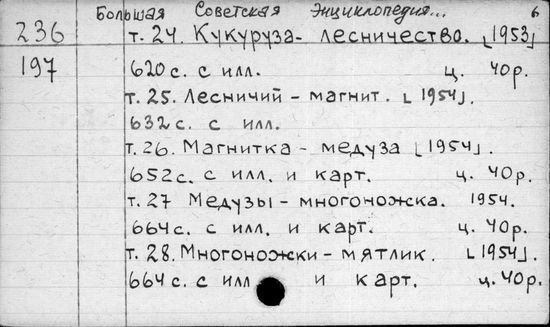 Большая Советская Энциклопедия... 6
236 т. 24. Кукуруза - лесничество. [1953]
197 620 с. с илл. ц. 40 р.
т. 25. Лесничий - магнит. [1954].
632 с. с илл.
т. 26. Магнитка - медуза [1954].
652 с. с илл. и карт. ц. 40 р.
т. 27 Медузы - многоножка. 1954.
664 с. с илл. и карт. ц. 40 р.
т. 28. Многоножки - мятлик. [1954].
664 с. с илл и карт. ц. 40 р.